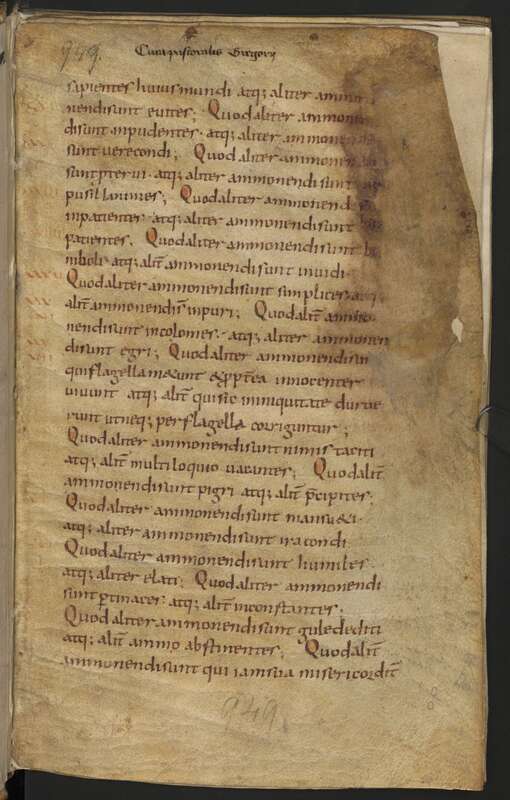 949.
Cura pastoralis Gregorii
sapientes huius mundi atq; aliter ammo
nendi sunt evites; Quod aliter ammonen
di sunt inpudentes. atq; aliter ammonen
sunt verecondi; Quod aliter ammonen
sunt pterui. atq; aliter ammonendi sunt
pusillanimes; Quod aliter ammonendi
inpatientes. atq; aliter ammonendi sunt
patientes. Quod aliter ammonendi sunt be
niboli. atq; alit̄ ammonendi sunt inuidi.
Quod aliter ammonendi sunt simplices. atq;
alit̄ ammonendi s̄ inpuri; Quod alit̄ ammo
nendi sunt incolomes. atq; aliter ammonen
di sunt egri; Quod aliter ammonendi sun
qui flagella metunt & ppt̄ea innocenter
uiuunt atq; alit̄ qui sic in iniquitate durue
runt ut neq; per flagella corrigantur;
Quod aliter ammonendi sunt nimis taciti
atq; alit̄ multiloquio uacantes; Quod alit̄
ammonendi sunt pigri atq; alit̄ p̄cipites;
Quod aliter ammonendi sunt mansu&i.
atq; aliter ammonendi sunt iracondi.
Quod aliter ammonendi sunt humiles
atq; aliter elati; Quod aliter ammonendi
sunt p̱tinaces. atq; alit̄ inconstantes.
Quod aliter ammonendi sunt gule dediti
atq; alit̄ ammo abstinentes; Quod alit̄
ammonendi sunt qui iam sua misericordit̄
949.